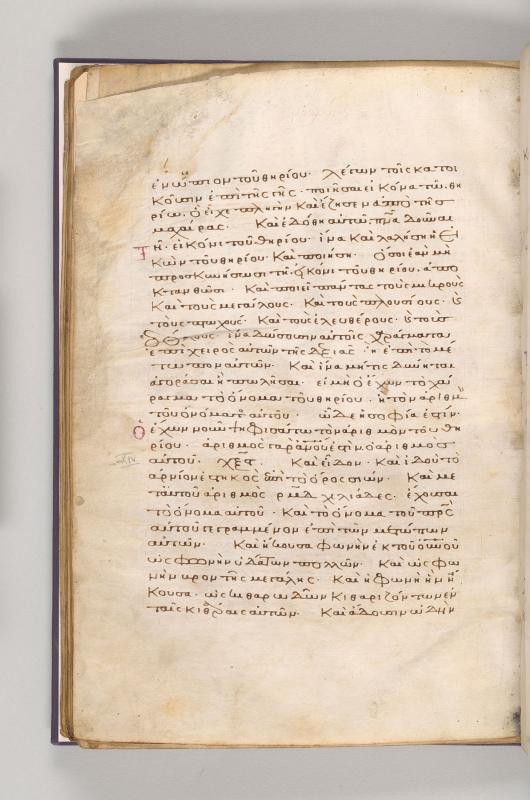 ἐνώπιον τοῦ θηρίου· λέγων τοῖς κατοι
κοῦσιν ἐπὶ τῆς γῆς· ποιῆσαι εἰκόνα τῶ θη
ρίω. ὃ εἶχε πληγὴν καὶ ἔζησεν ἀπὸ τῆς
μαχαίρας. Καὶ ἐδόθη αὐτῶ πν̅α δοῦναι
τῆ εἰκόνι τοῦ θηρίου· ἵνα καὶ λαλήση ἡ εἰ
κὼν τοῦ θηρίου. καὶ ποιήση· ὅσοι ἐὰν μὴ
προσκυνήσωσι τῆ εἰκόνι τοῦ θηρίου, ἀπο
κτανθῶσι. Καὶ ποιεῖ πάντας τοὺς μικροὺς
καὶ τοὺς μεγάλους. καὶ τοὺς πλουσίους. ϗ
τοὺς πτωχούς. καὶ τοὺς ἐλευθέρους. ϗ τοὺς
δούλους. ἵνα δώσουσιν αὐτοῖς χράγματα
ἐπὶ χειρὸς αὐτῶν τῆς δεξιᾶς· ἢ ἐπὶ τὸ μέ
τωπον αὐτῶν. Καὶ ἵνα μήτις δύνηται
ἀγοράσαι ἢ πωλῆσαι. εἰ μὴ ὁ ἔχων τὸ χά
ραγμα τὸ ὄνομα τοῦ θηρίου. ἢ τὸν ἀριθμὸν
τοῦ ὀνόματος αὐτοῦ. ὧδε ἡ σοφία ἐστίν.
ὁ ἔχων νοῦν ψηφισάτω τὸν ἀριθμὸν τοῦ θη
ρίου. ἀριθμὸς γὰρ ἀν̅ου ἐστὶν. ὁ ἀριθμὸς
αὐτοῦ. χξϛ. Καὶ εἶδον. καὶ ἰδοὺ τὸ
ἀρνίον ἑστηκὸς ἐπὶ τὸ ὄρος σιών. καὶ με
τ' αὐτοῦ ἀριθμὸς ρμδ χιλιάδες. ἔχουσαι
τὸ ὄνομα αὐτοῦ. καὶ τὸ ὄνομα τοῦ πρ̅ς
αὐτοῦ γεγραμμένον ἐπὶ τῶν μετώπων
αὐτῶν. Καὶ ἤκουσα φωνὴν ἐκ τοῦ οὐ̅νοῦ
ὡς φωνὴν ὑδάτων πολλῶν. καὶ ὡς φω
νὴν βροντῆς μεγάλης. καὶ ἡ φωνὴ ἣν ἤ
κουσα. ὡς κιθαρωδῶν κιθαριζόντων ἐν
ταῖς κιθάραις αὐτῶν. Καὶ ἄδουσιν ὠδὴν